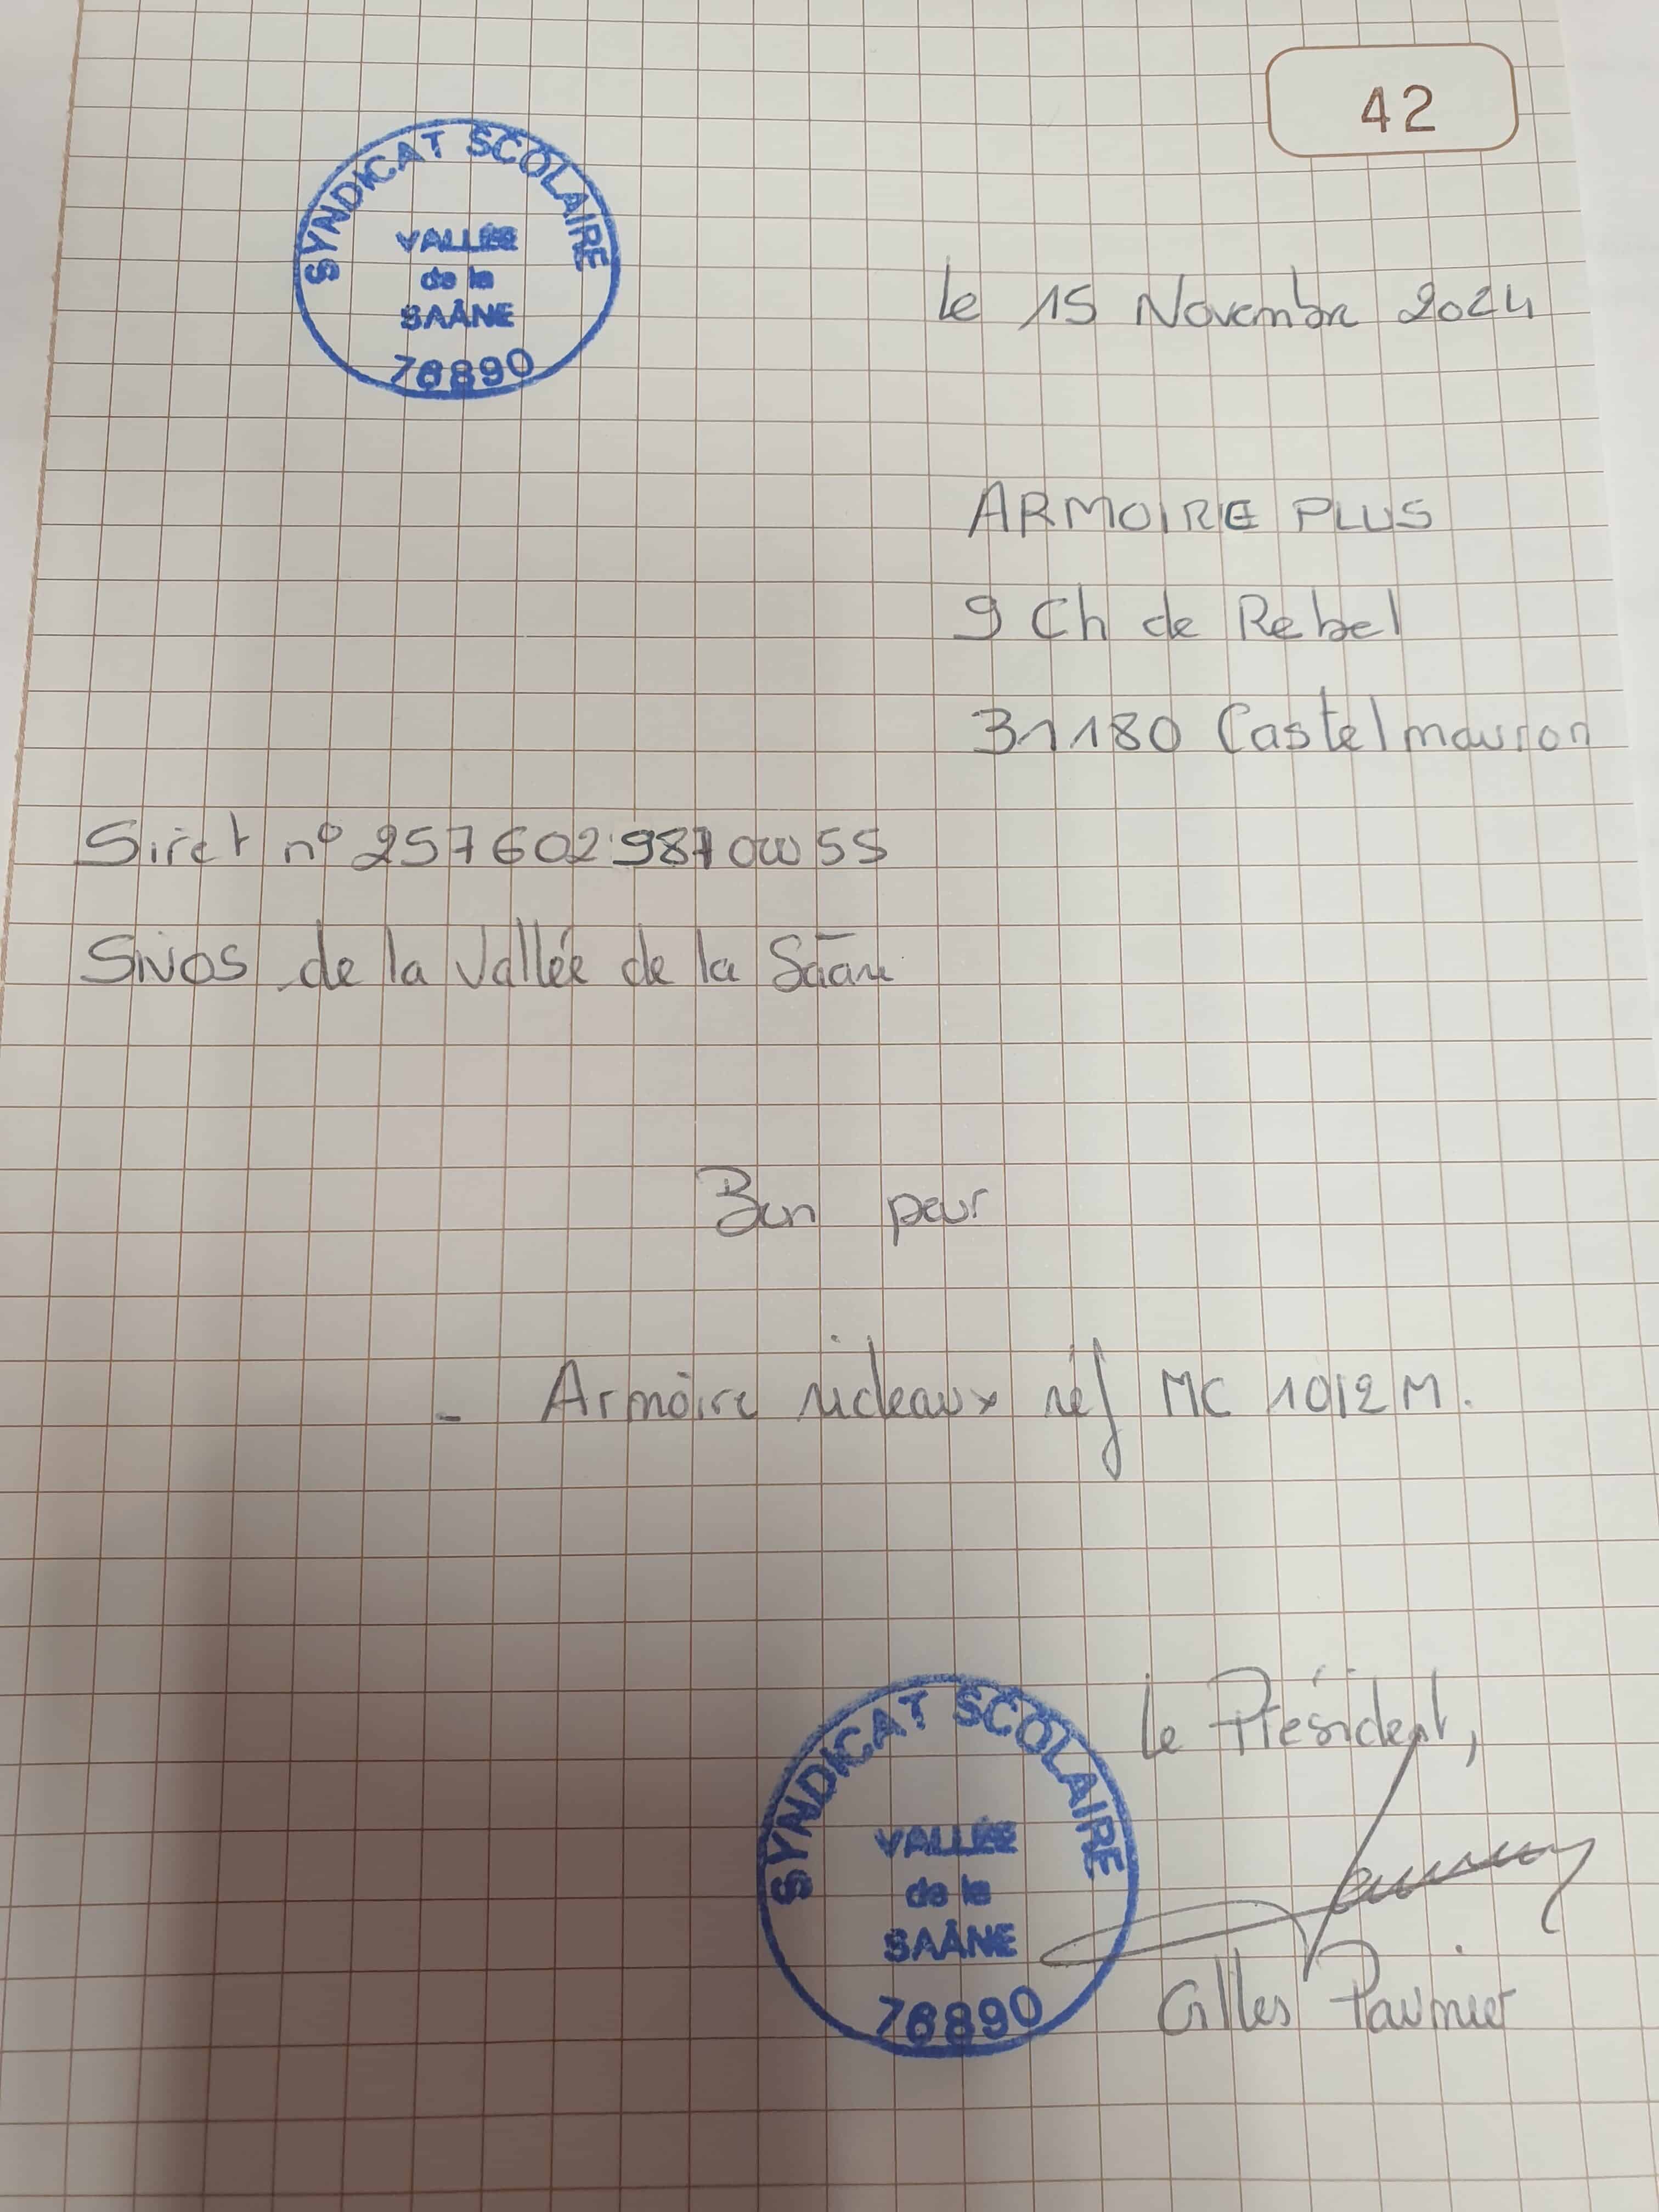 42
SYNDICAT SCOLAIRE
VALLÉE
de la
SAÂNE
76890
le 15 Novembre 2024
ARMOIRE PLUS
9 Ch de Rebel
31180 Castelmauron
Siret n° 257602987 00055
Sivos de la Vallée de la Saâne
Bon pour
- Armoire rideaux réf MC 1012M.
le Président,
SYNDICAT SCOLAIRE
VALLÉE
de la
SAÂNE
76890
Gilles Paumier